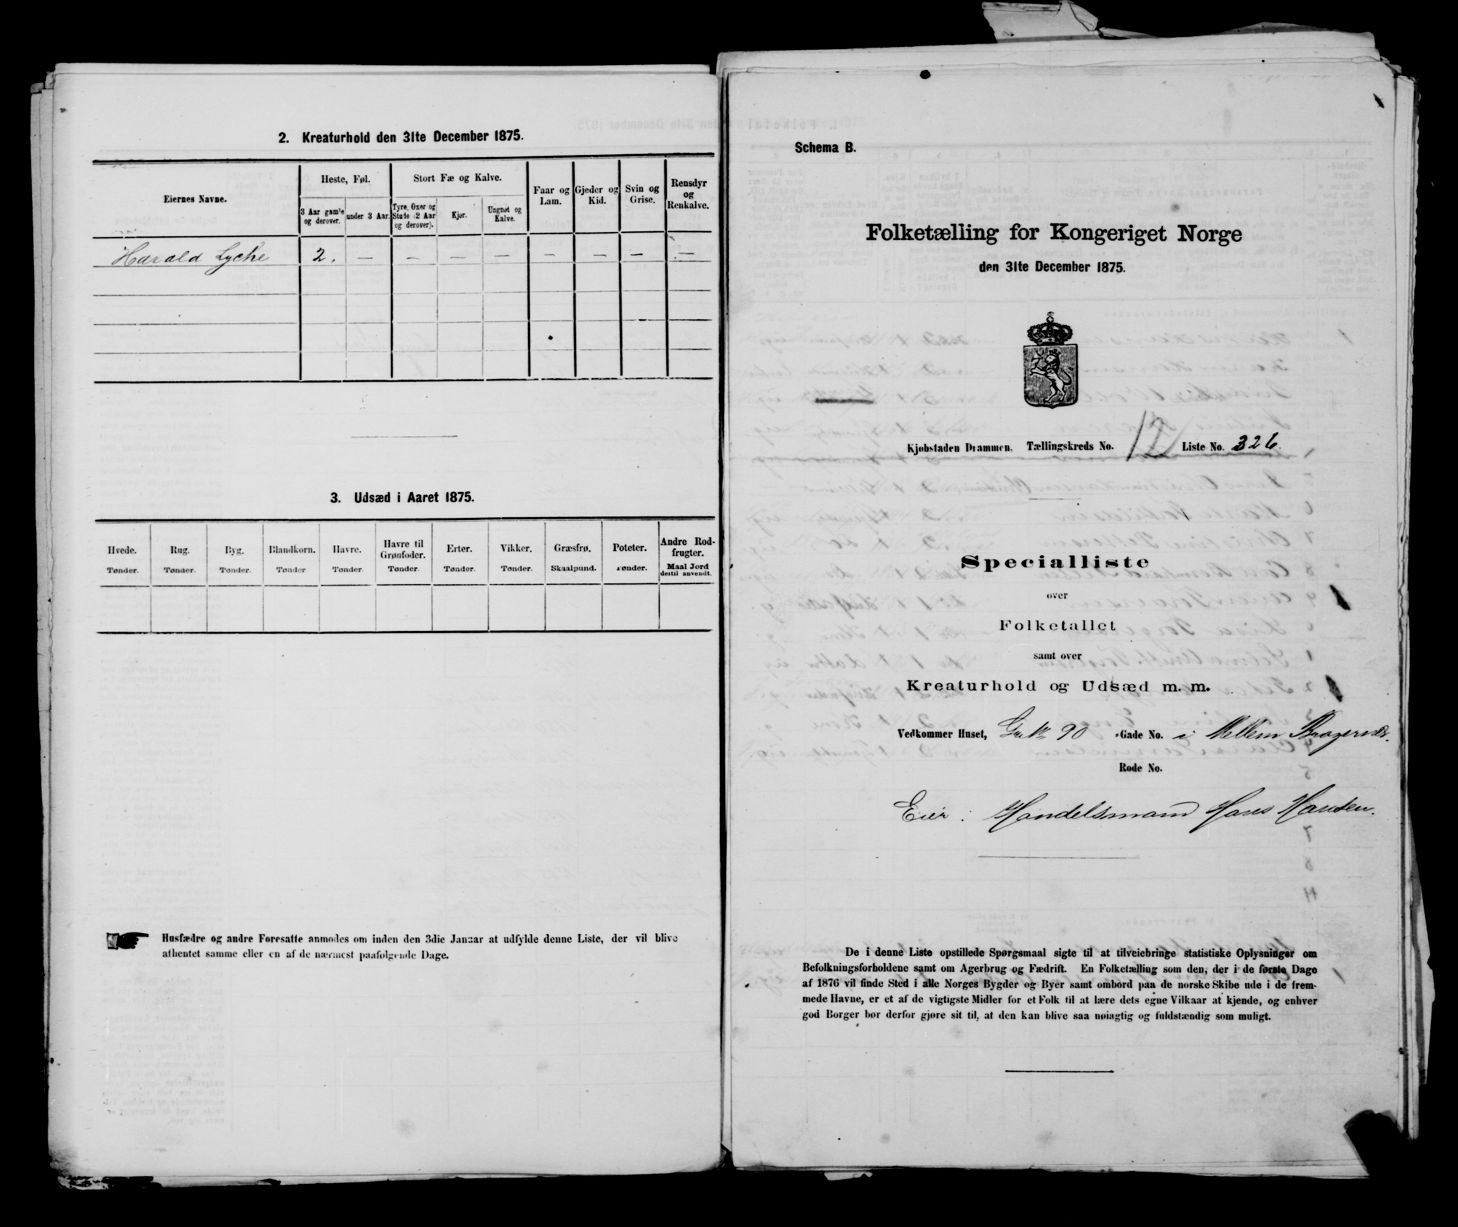 2. Kreaturhold den 31te December 1875.
Eiernes Navne.
Heste, Føl.
Stort Fæ og Kalve.
Faar og Lam.
Gjeder og Kid.
Svin og Grise.
Rensdyr og Renkalve.
3 Aar gamle og derover.
under 3 Aar.
Tyre, Oxer og Stude (2 Aar og derover).
Kjør.
Ungnøt og Kalve.
Harald Lyche 2. — — — — — — — —
3. Udsæd i Aaret 1875.
Hvede. Rug. Byg. Blandkorn. Havre. Havre til Grønfoder. Erter. Vikker. Græsfrø. Poteter. Andre Rodfrugter.
Tønder. Tønder. Tønder. Tønder Tønder. Tønder. Tønder. Tønder. Skaalpund. Tønder. Maal Jord destil anvendt.
Husfædre og andre Foresatte anmodes om inden den 3die Januar at udfylde denne Liste, der vil blive
afhentet samme eller en af de nærmest paafølgende Dage.
Schema B.
Folketælling for Kongeriget Norge
den 31te December 1875.
Kjøbstaden Drammen. Tællingskreds No. 12 Liste No. 326.
Specialliste
over
Folketallet
samt over
Kreaturhold og Udsæd m. m.
Vedkommer Huset, 90 Gade No. i Mellem Bragernes.
Rode No.
Eier: Handelsmand Hans Hansen.
De i denne Liste opstillede Spørgsmaal sigte til at tilveiebringe statistiske Oplysninger om
Befolkningsforholdene samt om Agerbrug og Fædrift. En Folketælling som den, der i de første Dage
af 1876 vil finde Sted i alle Norges Bygder og Byer samt ombord paa de norske Skibe ude i de frem-
mede Havne, er et af de vigtigste Midler for et Folk til at lære dets egne Vilkaar at kjende, og enhver
god Borger bør derfor gjøre sit til, at den kan blive saa nøiagtig og fuldstændig som muligt.